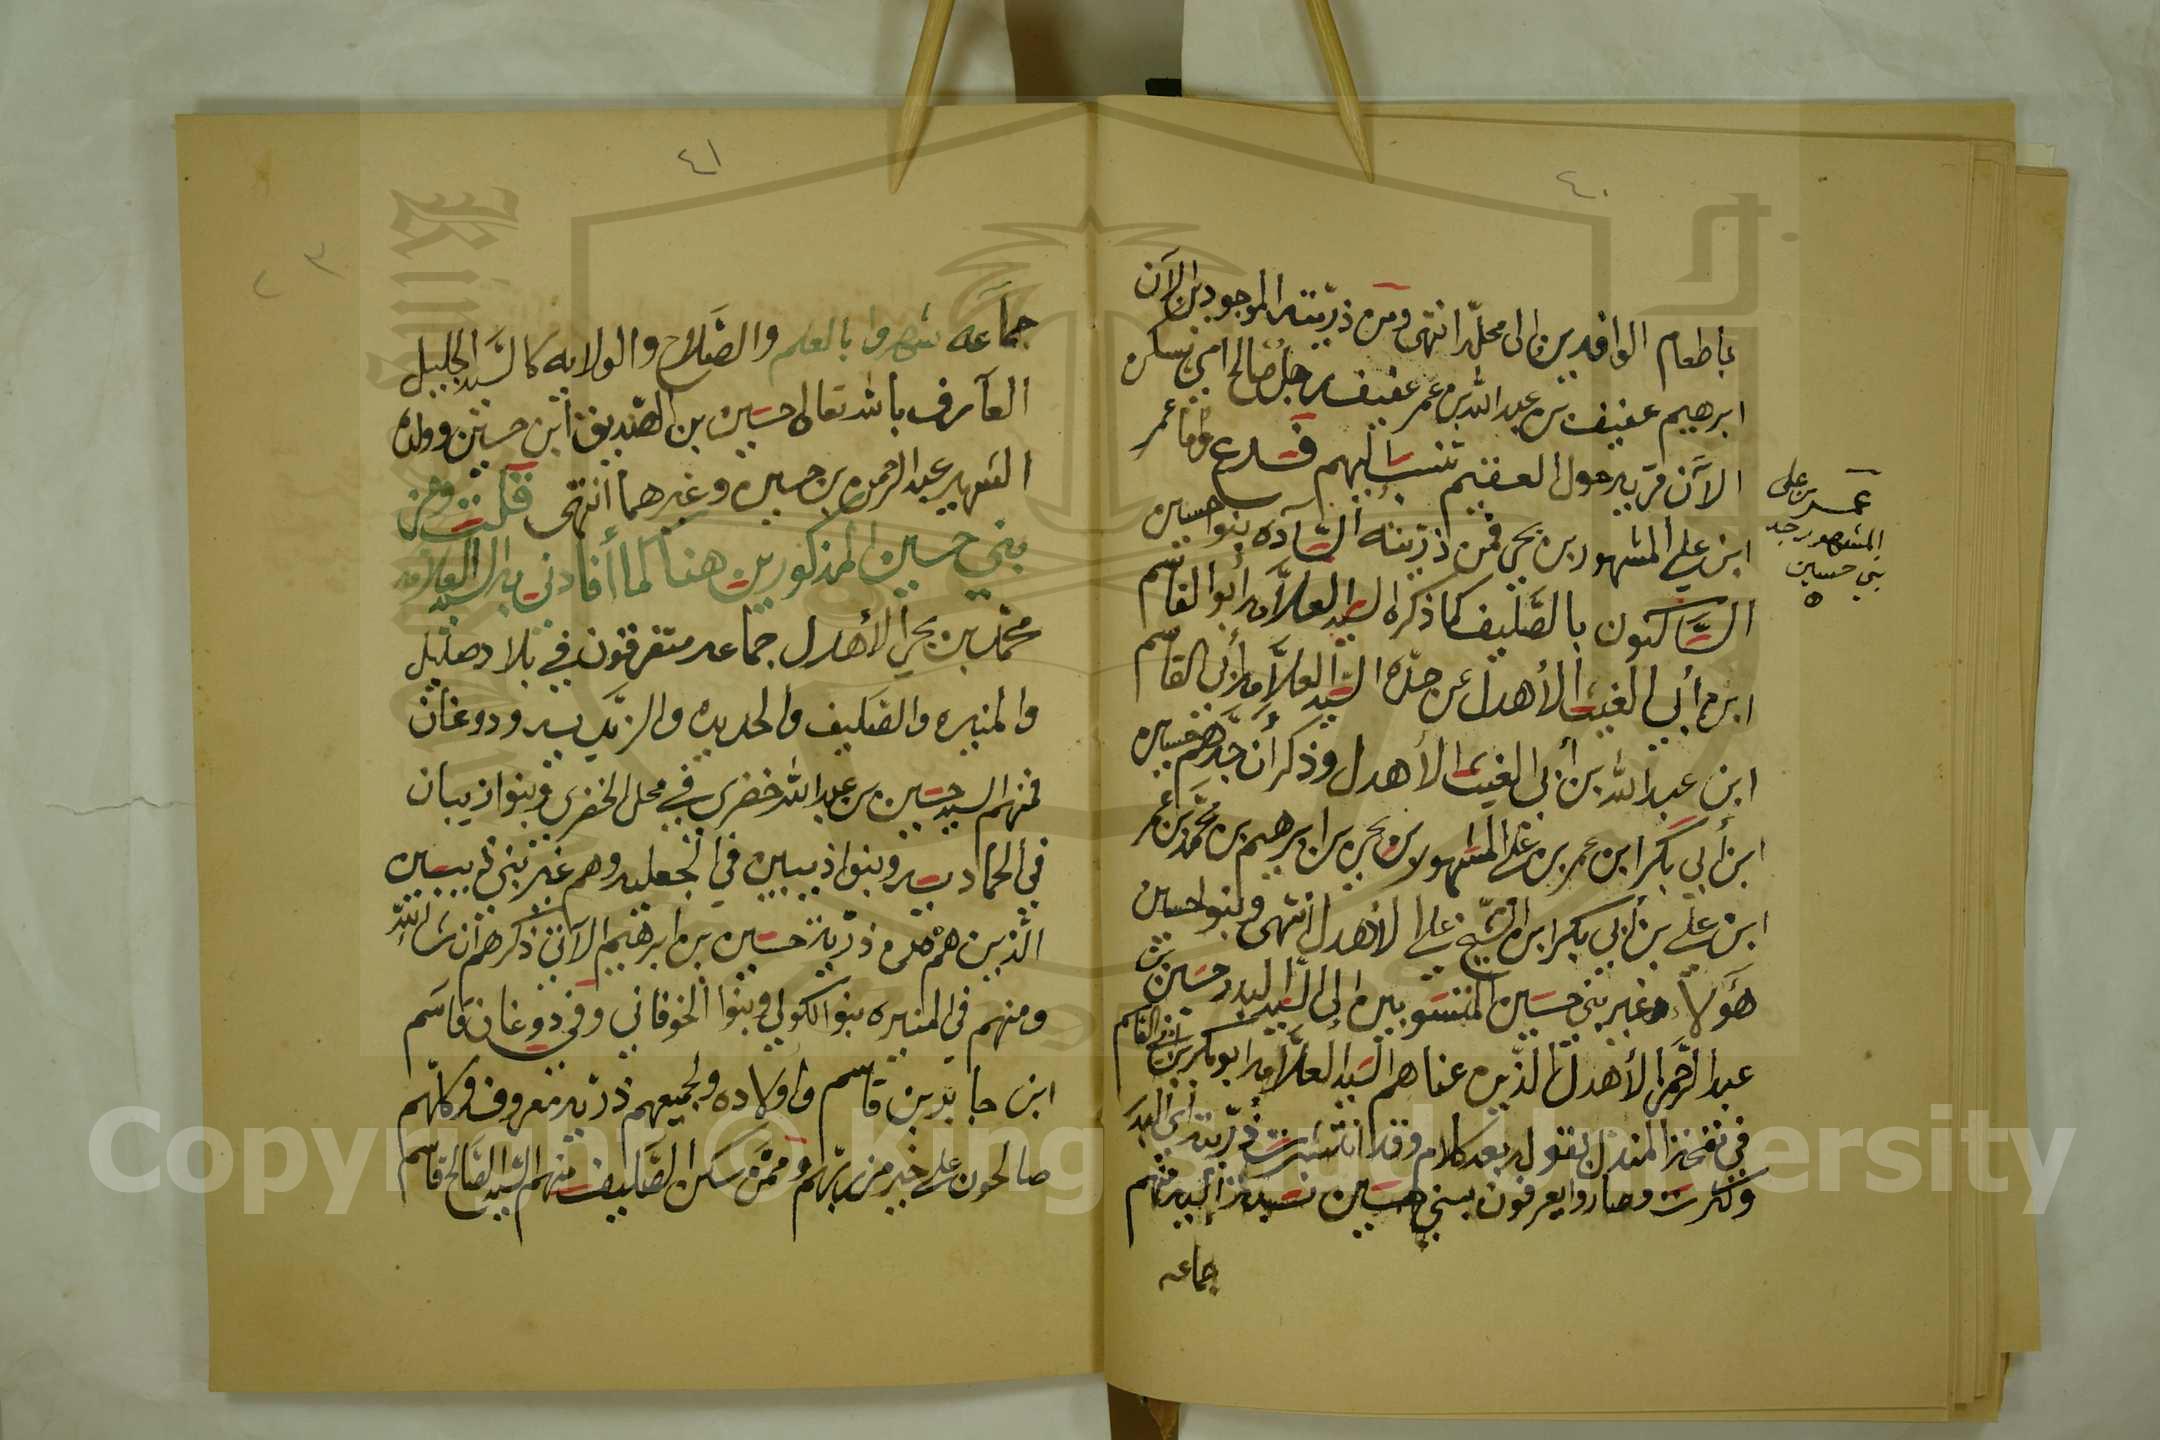 ٤٠
باطعام الوافدين الى محله انتهى ومن ذريته الموجودين الآن
ابرهيم عفيف بن عبد الله بن عمر عفيف رجل صالح امي يسكن
الآن قريه حول العقم تنسب اليهم فــرع واما عمر
ابن علي المشهور بن يحي فمن ذريته السّاده بنوا حسين
السّاكنون بالصّليف كما ذكره السيد العلاّمه أبو القاسم
ابن أبي الغيث الأهدل عن جدّه السّيد العلاّمه أبي القاسم
ابن عبد الله بن أبي الغيث الأهدل وذكر أن جدّهم حسين
ابن أبي بكر ابن عمر بن علي المشهور بن يحي بن ابرهيم بن محمّد بن عمر
ابن علي بن أبي بكر ابن الشّيخ علي الأهدل انتهى وبنوا حسين
هؤلاء غير بني حسين المنسوبين إلى السّيد البدر حسين بن
عبد الرّحمن الأهدل الذين عناهم السّيد العلاّمه ابو بكر بن أبي القاسم
في نفحة المندل بقوله بعد كلام وقد انتشرت ذرّيته أي البدر
وكثرت وصاروا يعرفون ببني حسين نسبة إليه منهم
جماعه
عمــر بن علي
المشهور جد
بني حسين
٥
٤١
جماعه شهروا بالعلم والصّلاح والولايه كالسّيد الجليل
العارف بالله تعالى حسين بن الصّديق ابن حسين وولده
الشهير عبد الرحمن بن حسين وغيرهما انتهى قلت ومن
بني حسين المذكورين هنا كما أفادني به السيد العلاّمه
محمّد بن يحي الأهدل جماعه متفرقون في بلاد صليل
والمنيره والصّليف والحديده والزّيديه ودوغان
فمنهم السيد حسين بن عبد الله خضري في محل الخضري وبنوا ذيبان
في الحماديه وبنوا ذيبين في الجعليه وهم غير بني ذيبين
الذين هم من ذرّية حسين بن ابرهيم الآتي ذكرهم ان شاء الله
ومنهم في المنيره بنوا لكولي وبنوا الخوفاني وفي دوغان قاسم
ابن جابر بن قاسم وأولاده ولجميعهم ذرّيه معروفه وكلّهم
صالحون على خير من ربّهم وممّن سكن الصّليف منهم السّيد الصّالح قاسم
Copyright © King Saud University